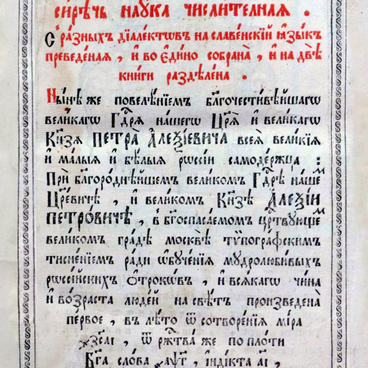 сирѣчь наука числителная .
С разныхъ дїалектѡвъ на славенскїй ѧзыкъ
преведеная , и во едино собрана , и на двѣ
книги раздѣлена .
Нынѣ же повелѣнїемъ благочестивѣйшагѡ
великагѡ Гдⷭ҇рѧ нашегѡ Цр҃ѧ и великагѡ
Кнѧ҃зѧ ПЕТРА АЛЕѮІЕВИЧА всеѧ великїѧ
и малыѧ и бѣлыѧ рѡссїи самодержца :
При благороднѣйшемъ великомъ Гдⷭ҇рѣ наше
Цр҃евичѣ , и великомъ Кнѧ҃зѣ АЛЕѮІИ
ПЕТРОВИЧѢ , в бг҃оспасаемомъ црⷭ҇твующе
великомъ градѣ москвѣ тѵпографскимъ
тисненїемъ ради ѡбученїѧ мудролюбивыхъ
рѡссїйскихъ ѻтрокѡвъ , и всѧкагѡ чина
и возраста людей на свѣтъ произведена
первое , в лѣто ѿ сотворенїѧ мїра
҂зс҃аі , ѿ ржⷭ҇тва же по плоти
Бг҃а слова ҂аѱ҃г , їндїкта аі ,